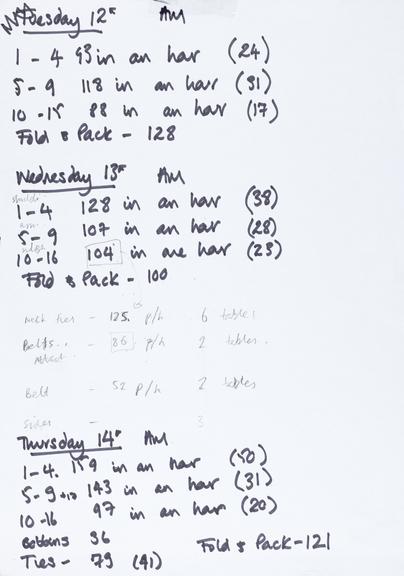 Tuesday 12th AM
1 - 4 93 in an har (24)
5 - 9 118 in an har (31)
10 - 15 88 in an har (17)
Fold & Pack - 128
Wednesday 13th AM
1-4 128 in an har (38)
5-9 107 in an har (28)
10-16 104 in are har (23)
Fold & Pack - 100
neck ties - 125. p/h 6 tables
Belts - 86 p/h 2 tables.
Belt - 52 p/h 2 tables
Sizes - 3
Thursday 14th AM
1-4. 159 in an har (50)
5-9 +10 143 in an har (31)
10-16 97 in an har (20)
Bobbins 36 Fold & Pack - 121
Ties - 79 (41)